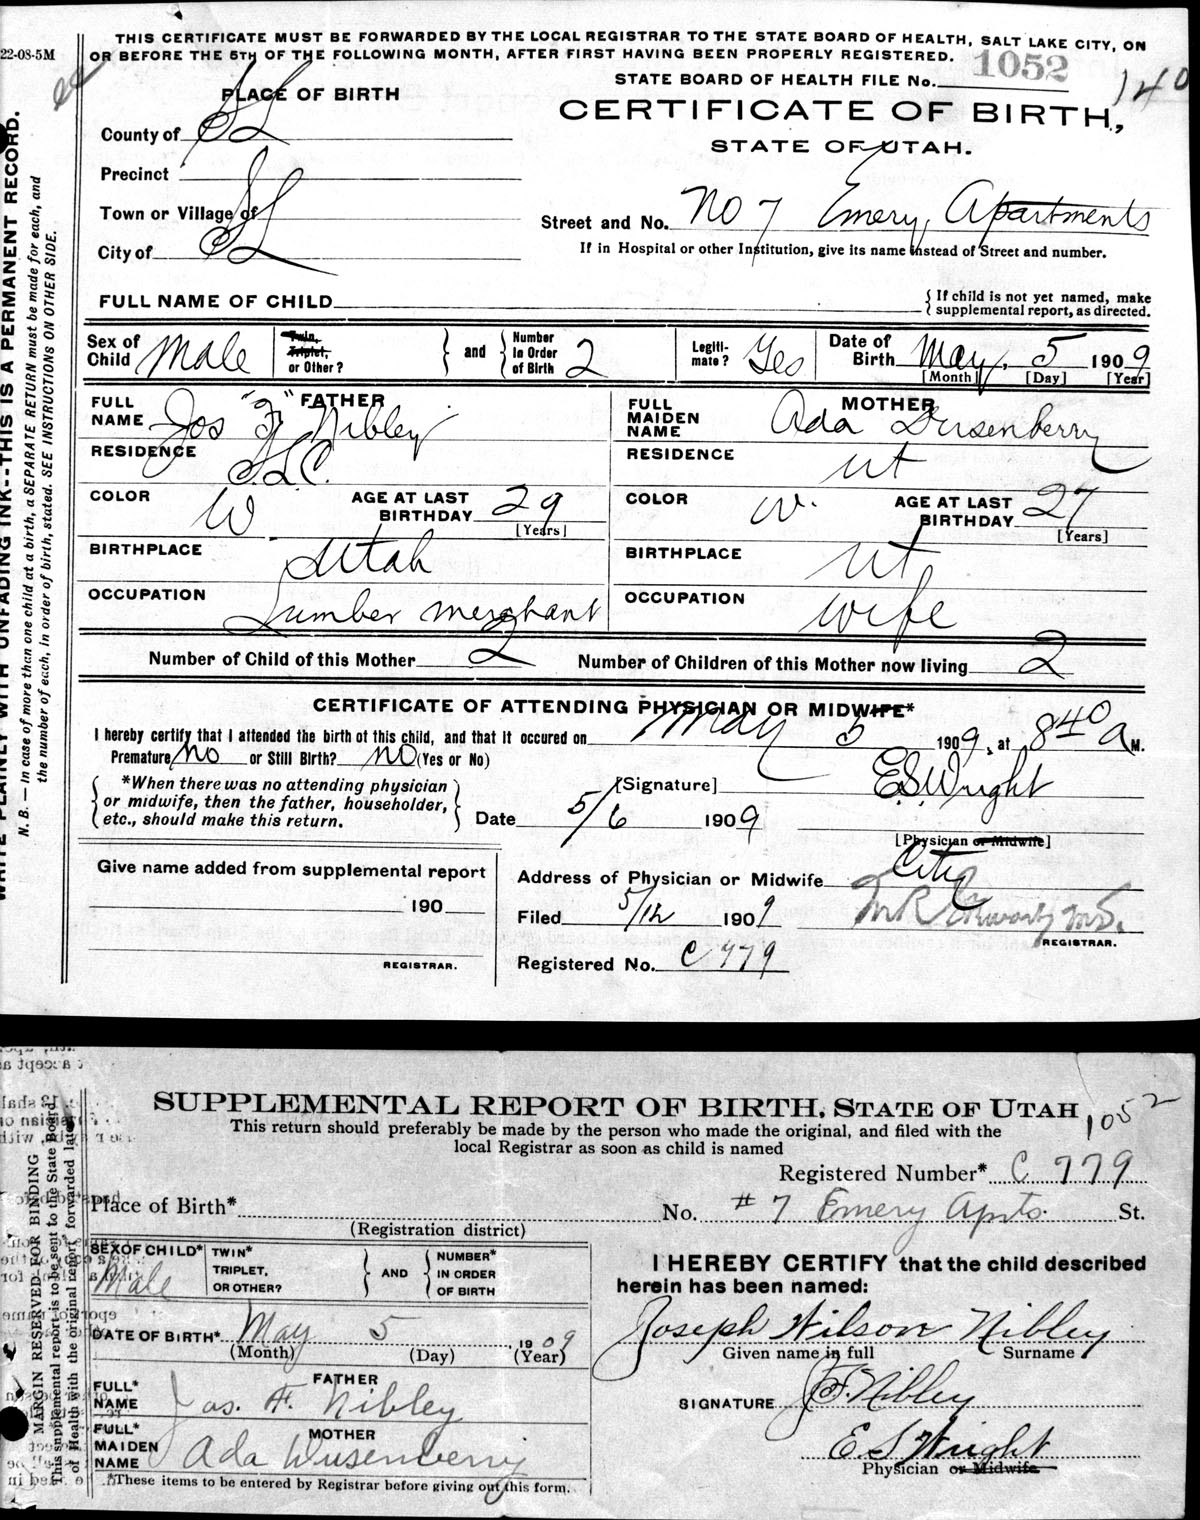 22-08-5M
THIS CERTIFICATE MUST BE FORWARDED BY THE LOCAL REGISTRAR TO THE STATE BOARD OF HEALTH, SALT LAKE CITY, ON
OR BEFORE THE 5TH OF THE FOLLOWING MONTH, AFTER FIRST HAVING BEEN PROPERLY REGISTERED.
STATE BOARD OF HEALTH FILE No. 1052
140
PLACE OF BIRTH
CERTIFICATE OF BIRTH,
STATE OF UTAH.
County of SL
Precinct
Town or Village of
City of SL
Street and No. No 7 Emery, Apartments
If in Hospital or other Institution, give its name instead of Street and number.
FULL NAME OF CHILD
{ If child is not yet named, make
supplemental report, as directed.
Sex of Child Male
Twin, Triplet, or Other? } and { Number in Order of Birth 2
Legiti-mate? Yes
Date of Birth May, 5 1909
[Month] [Day] [Year]
FATHER
FULL NAME Jos "F" Nibley
RESIDENCE S.L.C.
COLOR W AGE AT LAST BIRTHDAY 29
[Years]
BIRTHPLACE Utah
OCCUPATION Lumber merchant
MOTHER
FULL MAIDEN NAME Ada Dusenberry
RESIDENCE Ut
COLOR W. AGE AT LAST BIRTHDAY 27
[Years]
BIRTHPLACE Ut
OCCUPATION Wife
Number of Child of this Mother 2 Number of Children of this Mother now living 2
CERTIFICATE OF ATTENDING PHYSICIAN OR MIDWIFE*
I hereby certify that I attended the birth of this child, and that it occured on May 5 1909, at 8 40 A M.
Premature No or Still Birth? No (Yes or No)
{ *When there was no attending physician
or midwife, then the father, householder,
etc., should make this return. }
[Signature] E.S. Wright
Date 5/6 1909
[Physician or Midwife]
Give name added from supplemental report
190
REGISTRAR.
Address of Physician or Midwife City
Filed 5/12 1909
REGISTRAR.
Registered No. C 779
WRITE PLAINLY WITH UNFADING INK--THIS IS A PERMANENT RECORD.
N. B. — In case of more than one child at a birth, a SEPARATE RETURN must be made for each, and
the number of each, in order of birth, stated. SEE INSTRUCTIONS ON OTHER SIDE.
SUPPLEMENTAL REPORT OF BIRTH, STATE OF UTAH
1052
This return should preferably be made by the person who made the original, and filed with the
local Registrar as soon as child is named
Registered Number* C 779
Place of Birth* No. #7 Emery Apts. St.
(Registration district)
SEX OF CHILD* Male
TWIN* TRIPLET, OR OTHER? } AND { NUMBER* IN ORDER OF BIRTH
DATE OF BIRTH* May 5 1909
(Month) (Day) (Year)
FATHER
FULL* NAME Jos. F. Nibley
MOTHER
FULL* MAIDEN NAME Ada Dusenberry
*These items to be entered by Registrar before giving out this form.
I HEREBY CERTIFY that the child described
herein has been named:
Joseph Wilson Nibley
Given name in full Surname
SIGNATURE J.F. Nibley
E S Wright
Physician or Midwife
MARGIN RESERVED FOR BINDING
This supplemental report is to be sent to the State Board
of Health with the original report forwarded later.